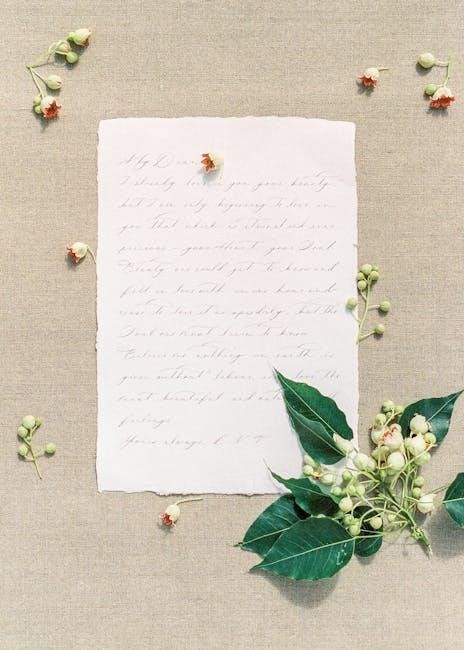 My Dear
I already love in you your beauty,
but I am only beginning to love in
you that which is eternal and ever
precious – your Heart, your Soul.
Beauty one could get to know and
fall in love with in one hour and
cease to love it as speedily; but the
Soul one must learn to know.
Believe me, nothing on earth is
given without labour, even love, the
most beautiful and
feelings
Yours always, L.